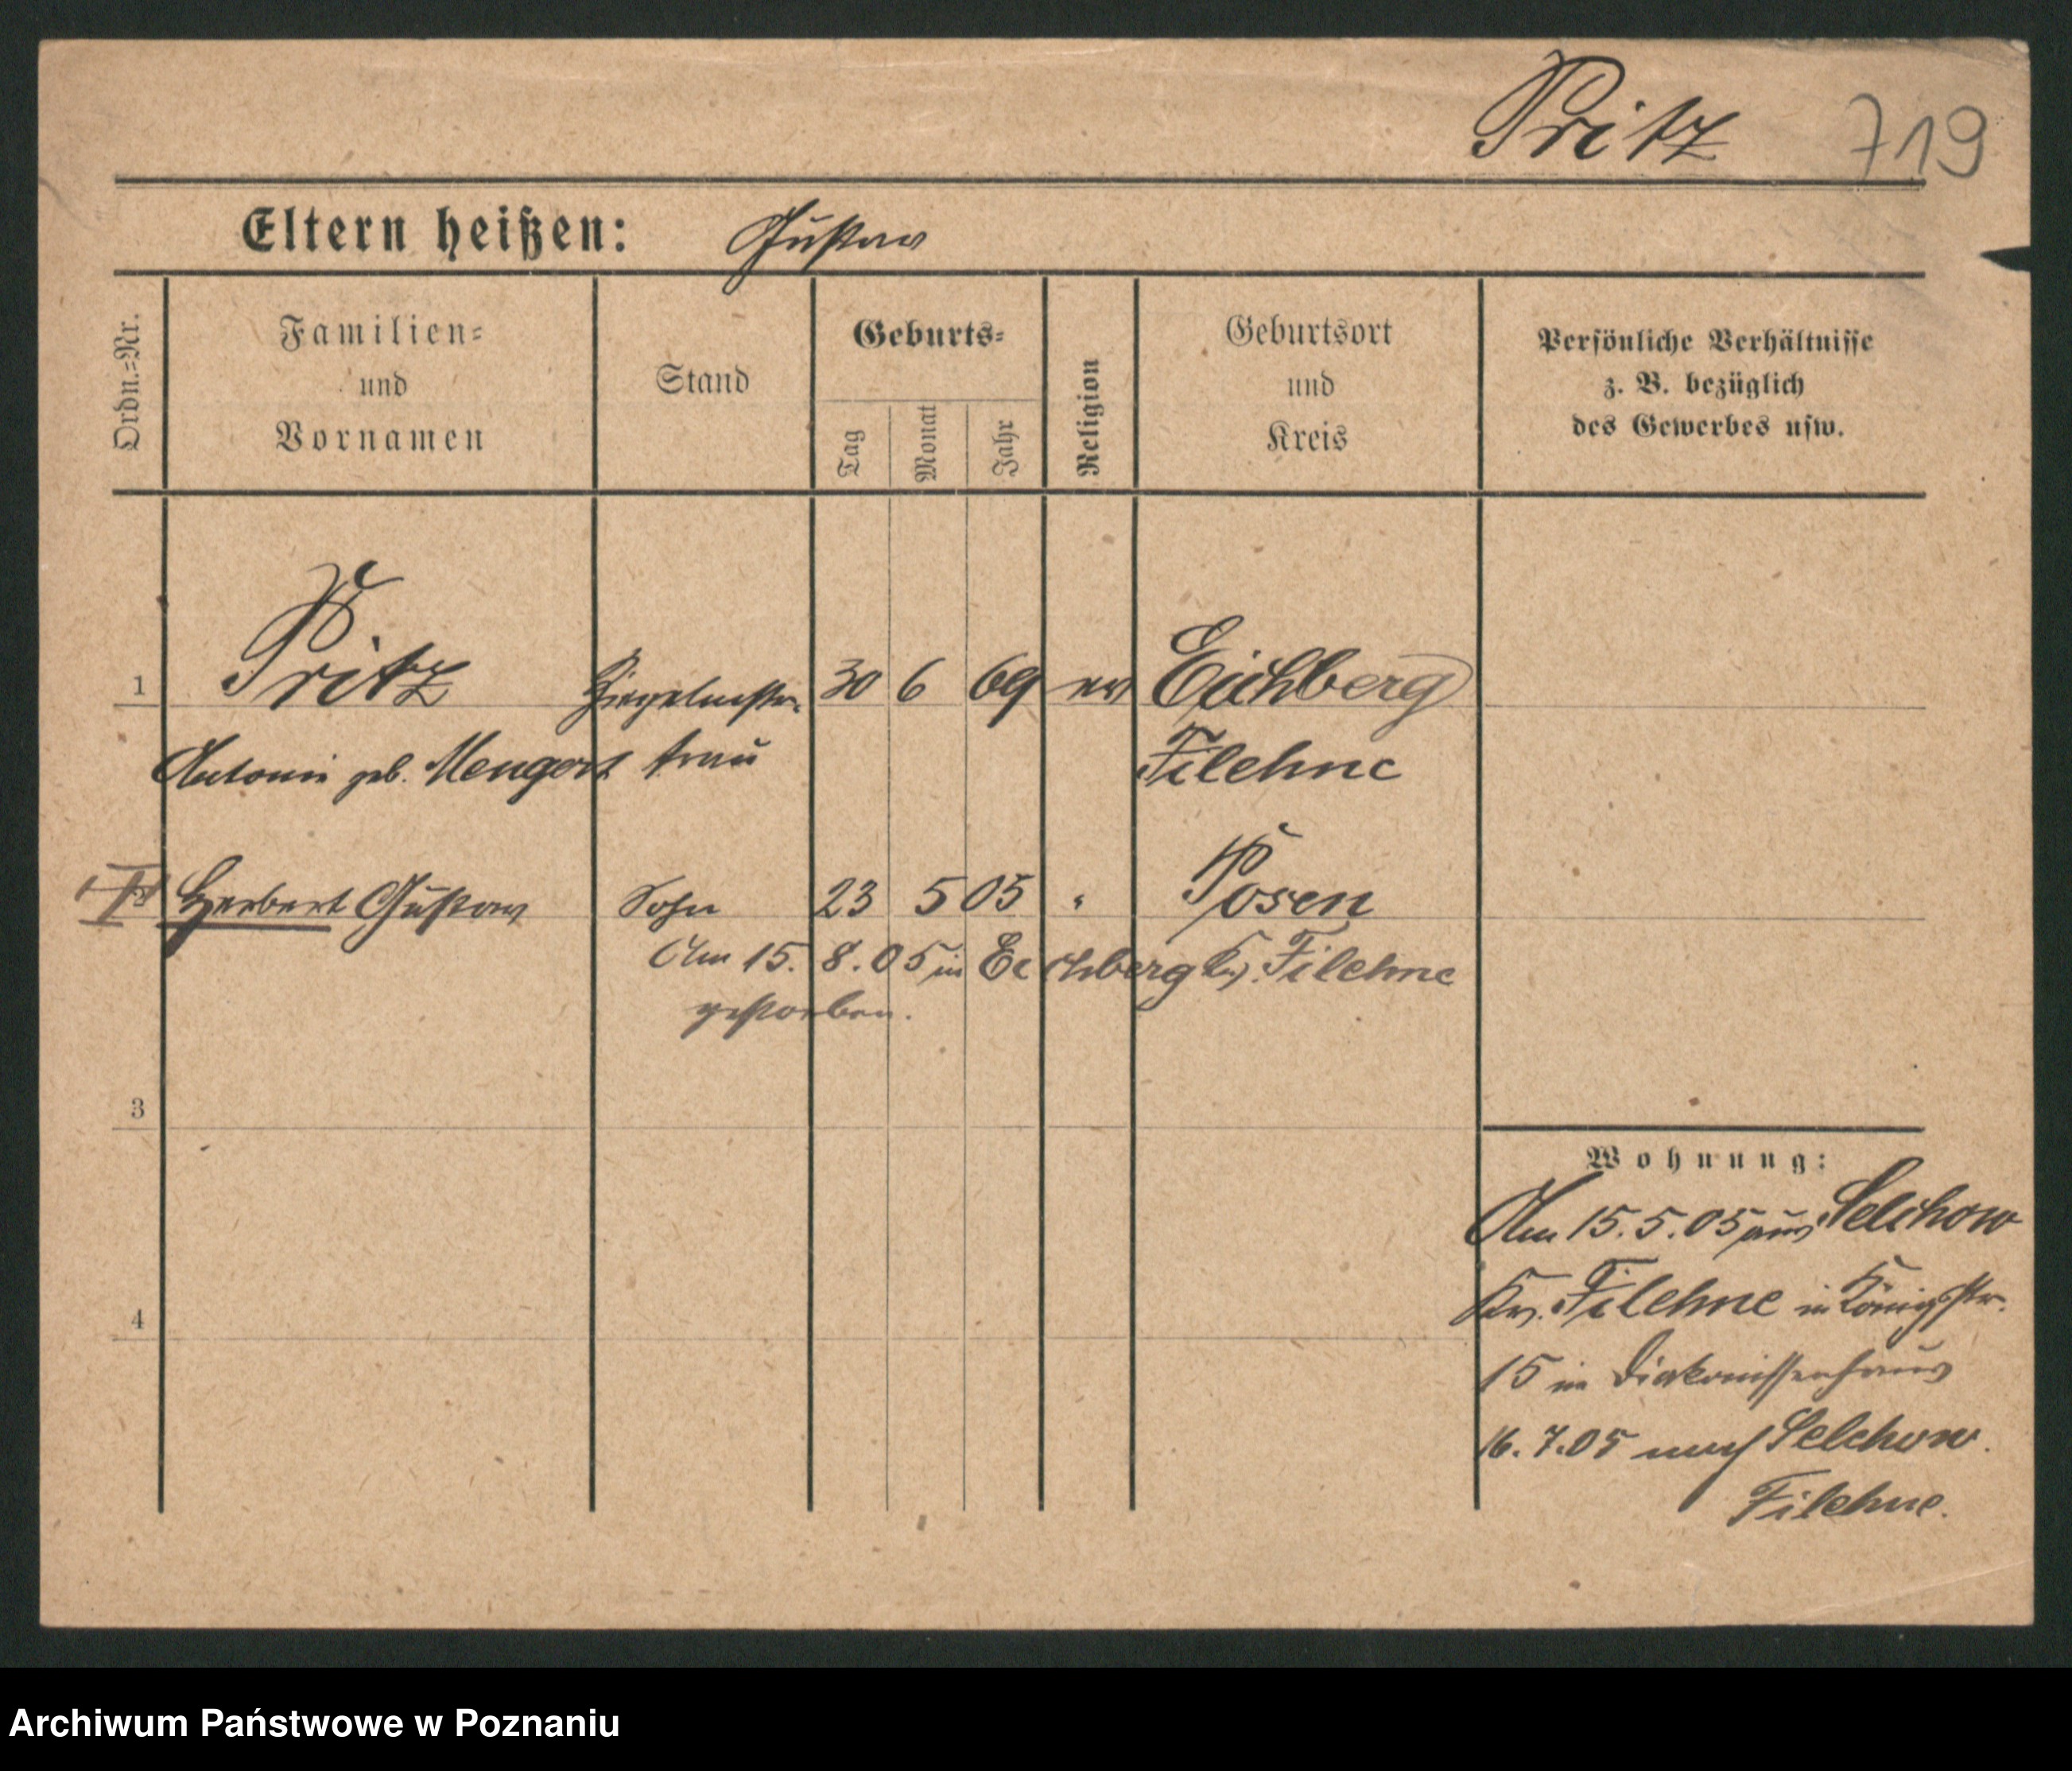 Pritz 719
Eltern heißen: Gustav
Ordn.=Nr.
Familien=
und
Vornamen
Stand
Geburts=
Tag
Monat
Jahr
Religion
Geburtsort
und
Kreis
Persönliche Verhältnisse
z. B. bezüglich
des Gewerbes usw.
1 Pritz Ziegelmstr. 30 6 69 ev Eichberg
Antonie geb. frau Filehne
Herbert Gustav Sohn 23 5 05 " Posen
Am 15. 8. 05 in Eichberg Kr. Filehne
gestorben.
3
4
Wohnung:
Am 15. 5. 05 aus Selchow
Kr. Filehne in Königstr.
15 in Diakonissenhaus
16. 7. 05 nach Selchow.
Filehne.
Archiwum Państwowe w Poznaniu